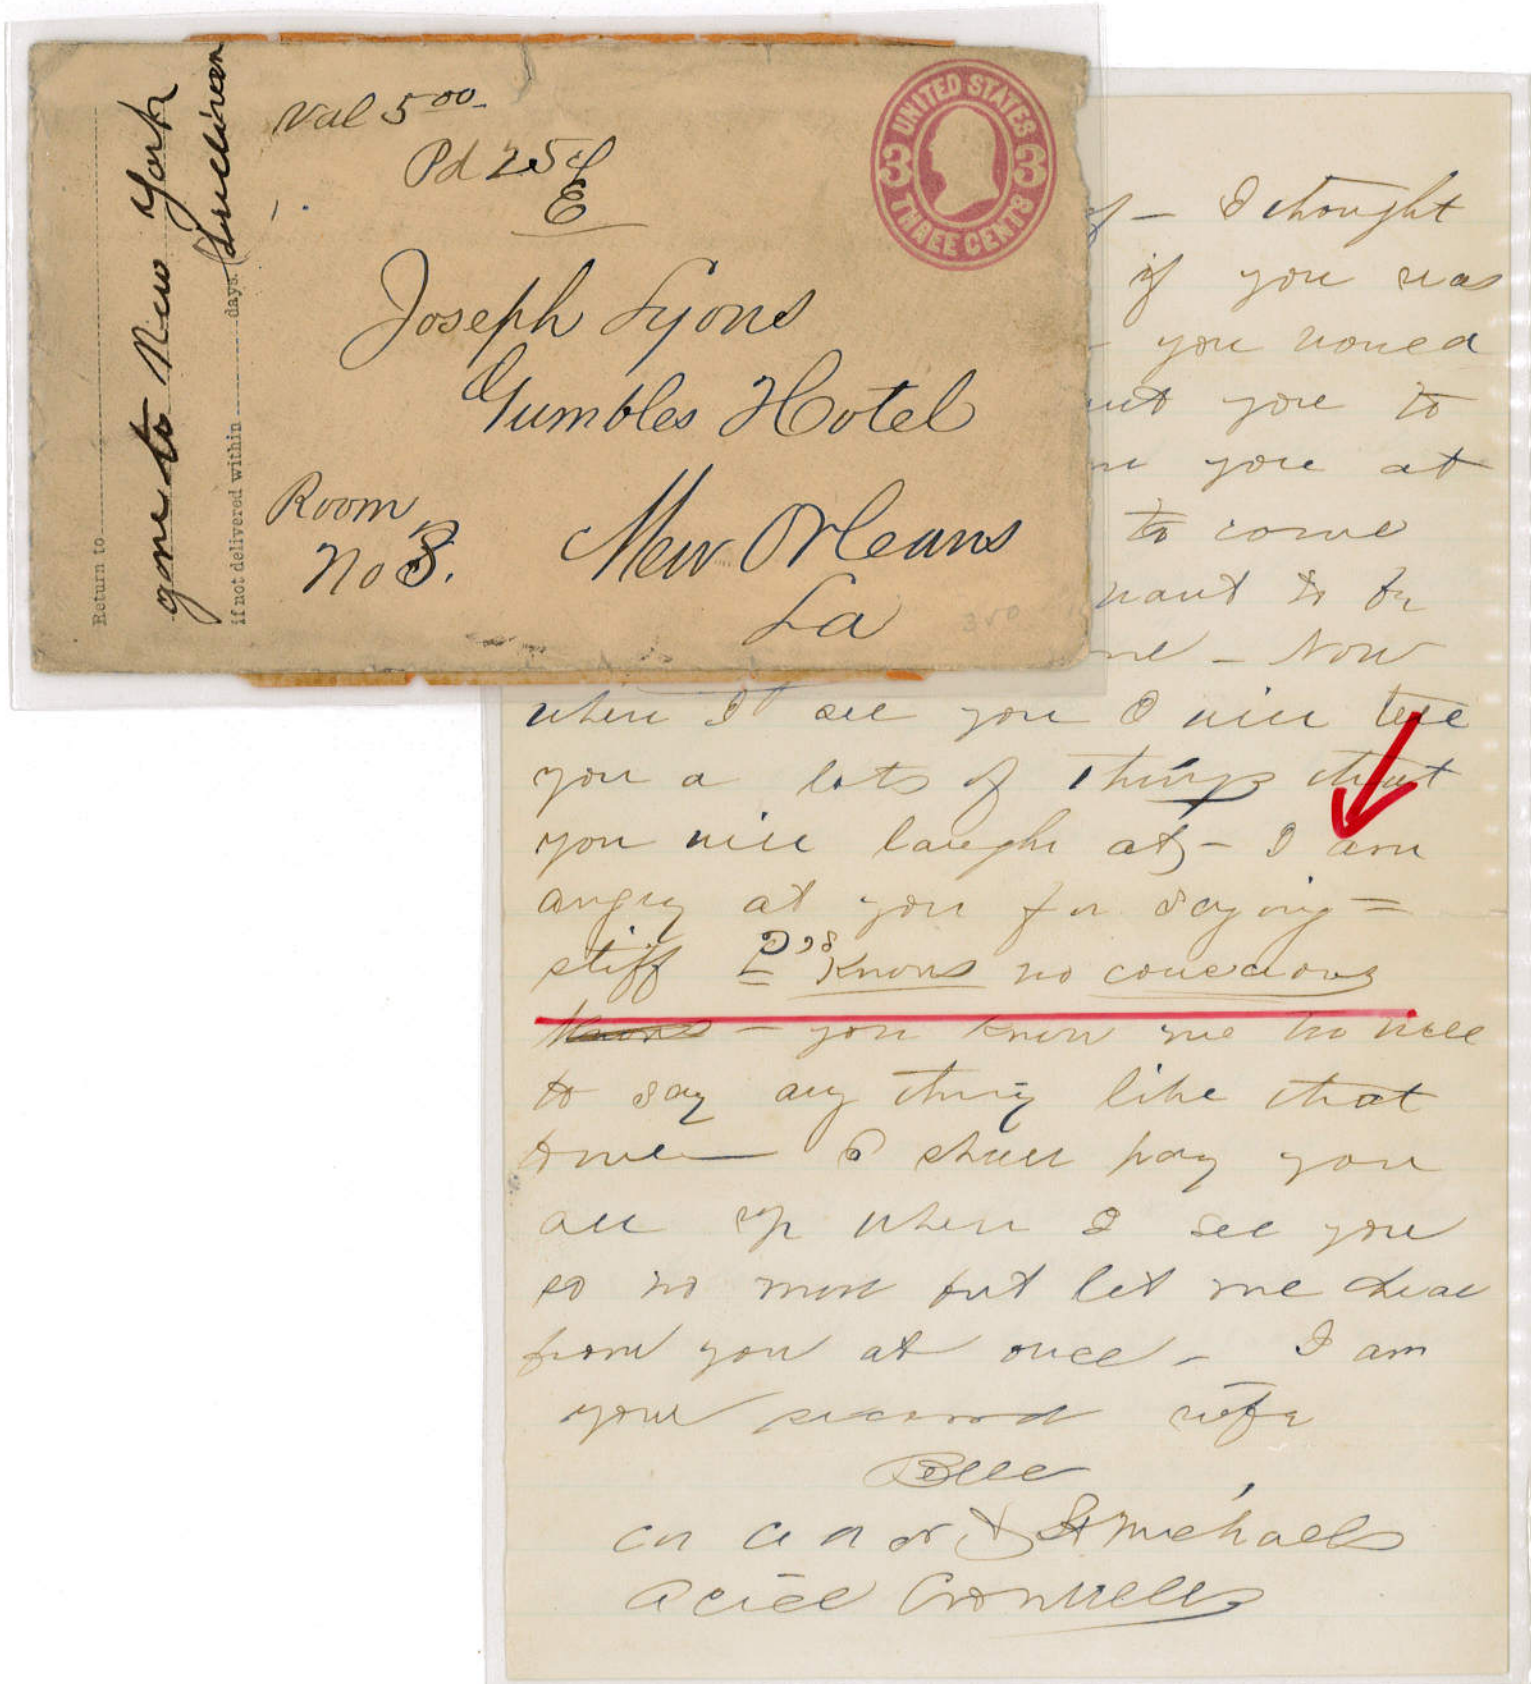 Return to
gone to New York
if not delivered within days.
Val 5 00
Pd 25¢
E
UNITED STATES
3 3
THREE CENTS
Joseph Lyons
Gumbles Hotel
Room
No 8.
New Orleans
La
350
- I thought
if you was
- you would
you to
you at
to come
want to be
- Now
when I see you I will tell
you a lots of things that
you will laugh at - I am
angry at you for saying =
stiff P's knows no
- you know me to well
to say any thing like that
I shall pay you
all up when I see you
so no more but let me hear
from you at once - I am
your second wife
Belle
St Michaels